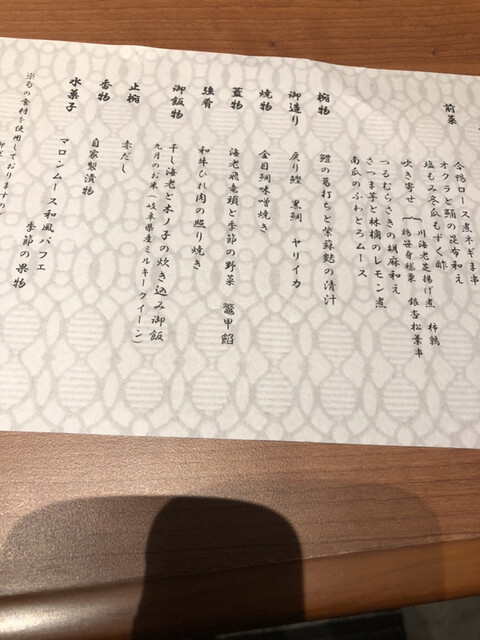 前菜
合鴨ロース煮ネギま串
オクラと鮪の昆布和え
塩もみ冬瓜もずく酢
吹き寄せ
川海老芝揚げ煮 柿鶉
鶏笹身穂栗 銀杏松葉串
つるむらさきの胡麻和え
さつま芋と林檎のレモン煮
南瓜のふわとろムース
椀物
鱧の葛打ちと紫蘇麩の清汁
御造り
戻り鰹 黒鯛 ヤリイカ
焼物
金目鯛味噌焼き
蓋物
海老飛竜頭と季節の野菜 鼈甲餡
強肴
和牛ひれ肉の照り焼き
御飯物
干し海老と木ノ子の炊き込み御飯
九月のお米(岐阜県産ミルキークイーン)
止椀
赤だし
香物
自家製漬物
水菓子
マロンムース和風パフェ
季節の果物
※旬の食材を使用しておりますので